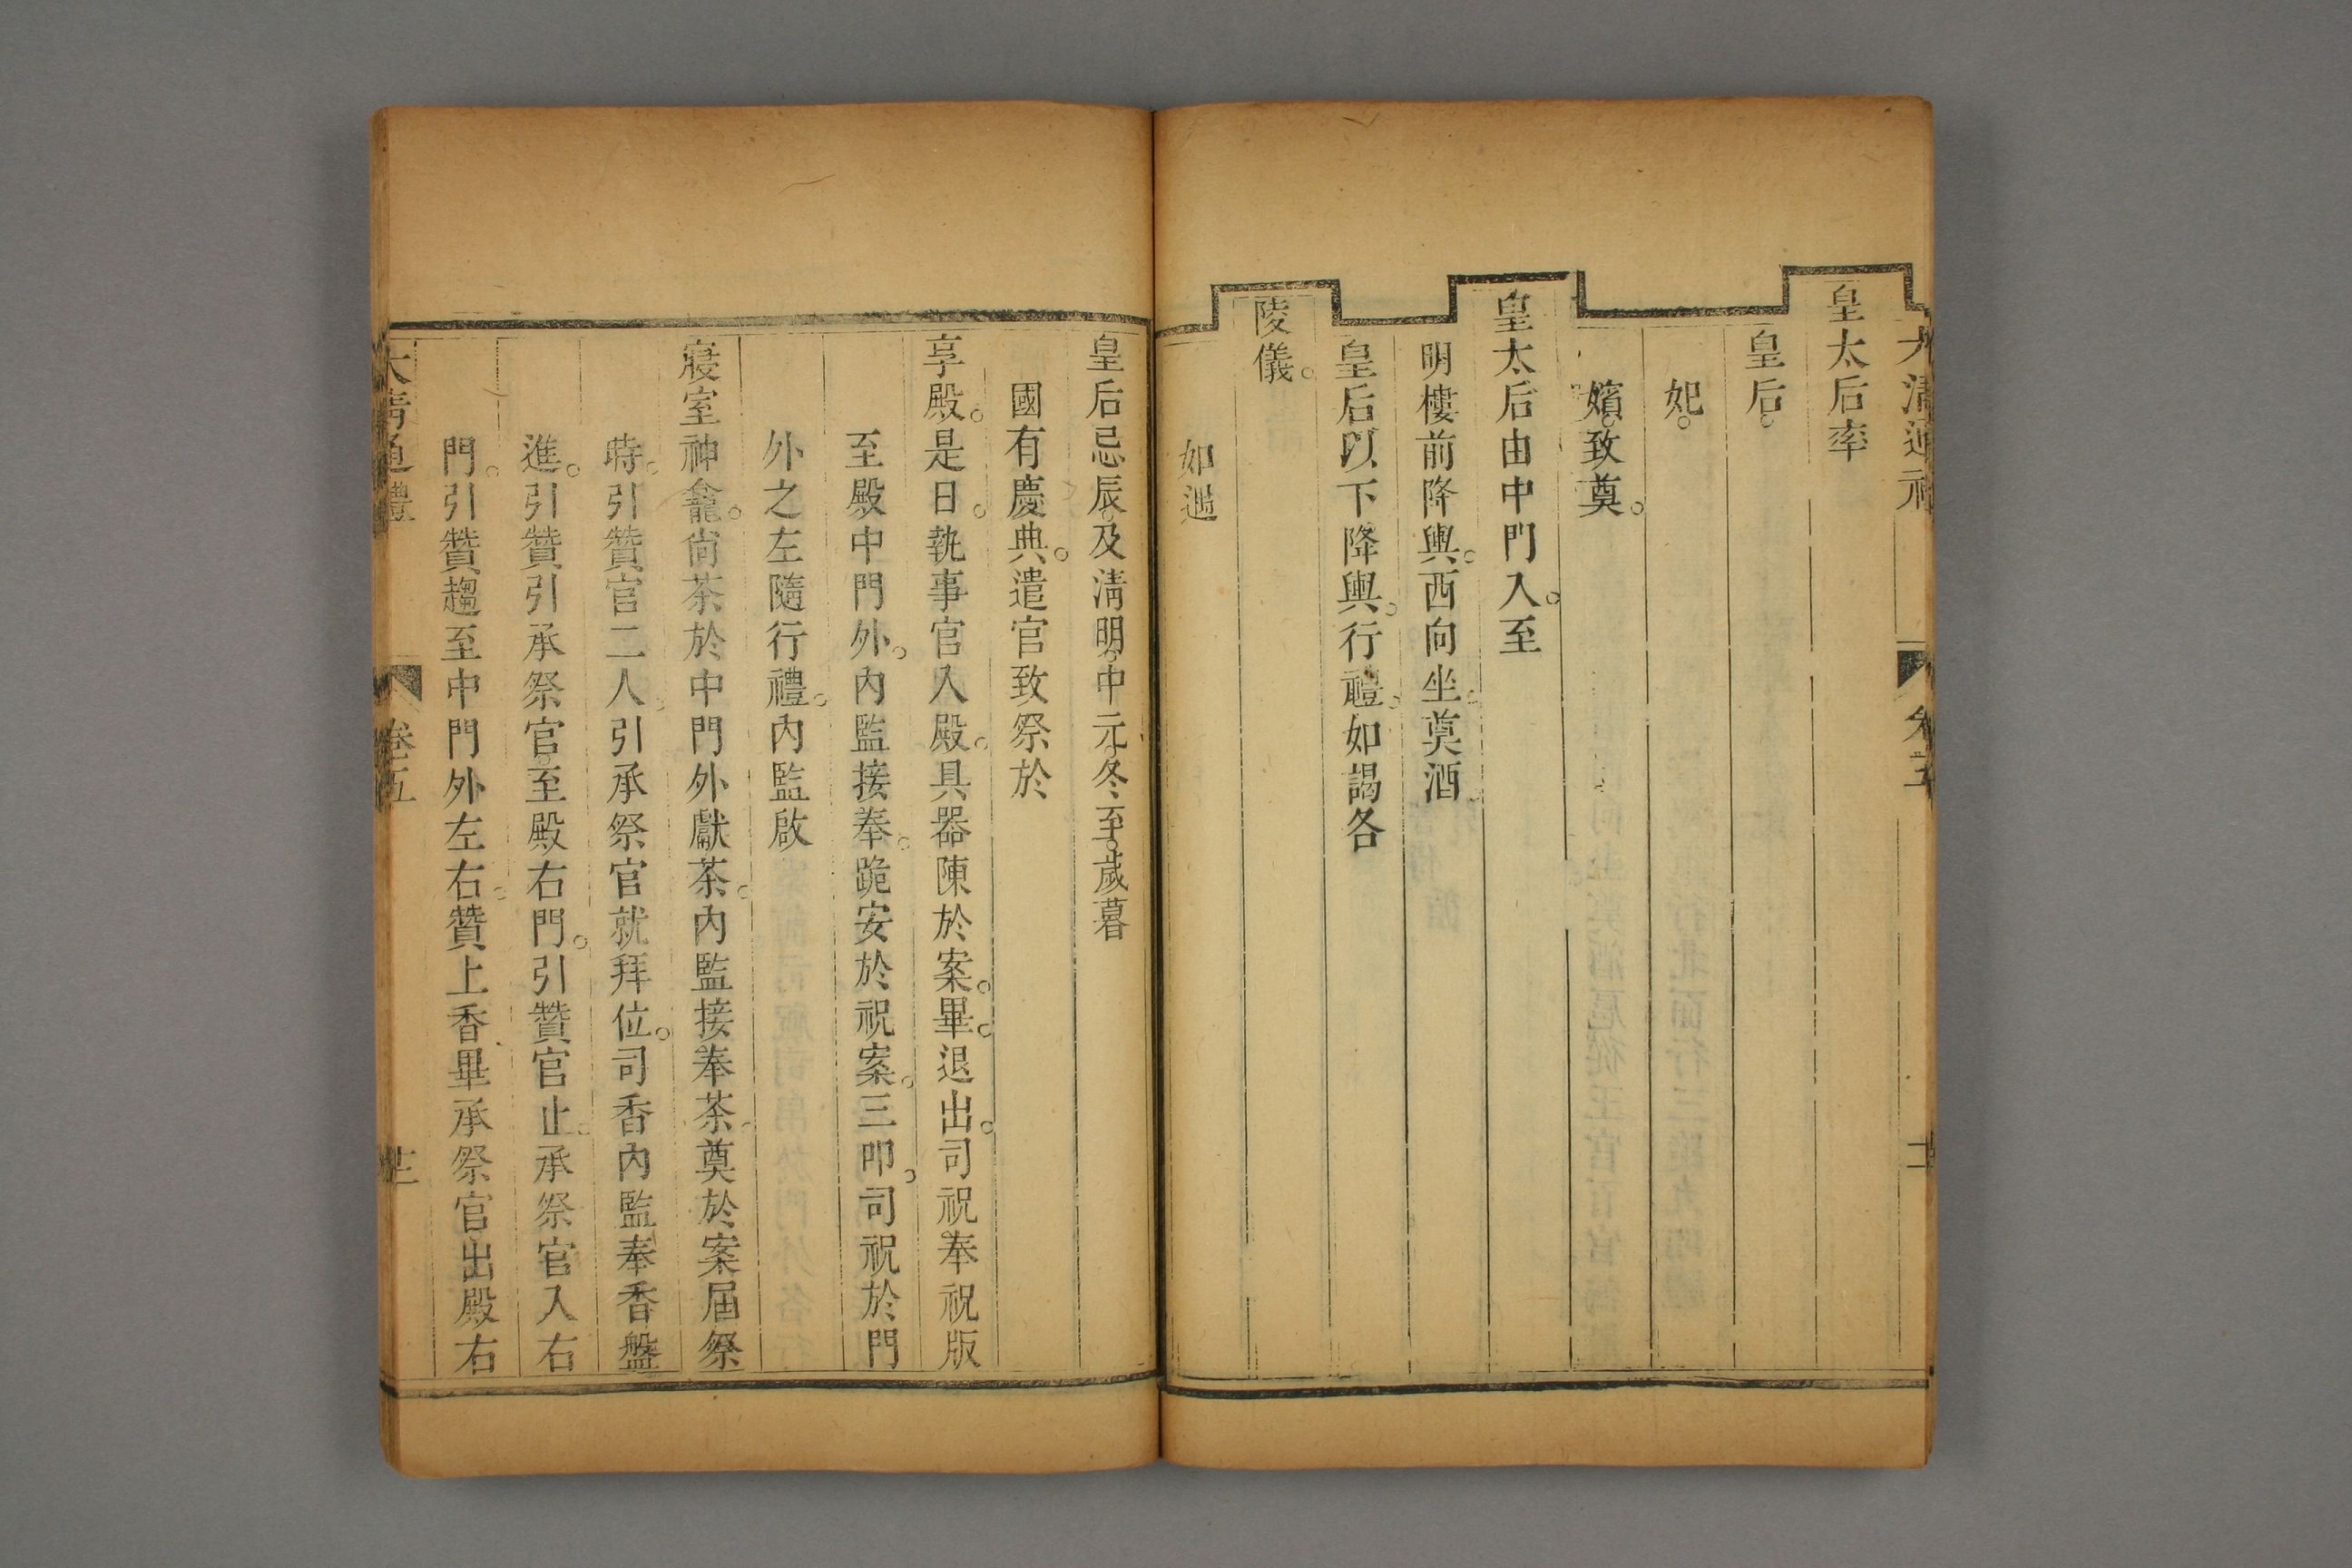 皇太后率
皇后。
妃。
嬪。致奠。
皇太后由中門入。至
明樓前降輿。西向坐。奠酒。
皇后以下降輿。行禮。如謁各
陵儀。
如遇
皇后忌辰。及淸明。中元。冬至。歲暮
國有慶典。遣官致祭於
享殿。是日。執事官入殿。具器陳於案。畢。退出。司祝奉祝版
至殿中門外。內監接奉。跪安於祝案。三叩。司祝於門
外之左隨行禮。內監啟
寢室神龕。尙茶於中門外獻茶。內監接奉茶。奠於案屆祭
時。引贊官二人。引承祭官就拜位。司香內監奉香盤
進。引贊引承祭官。至殿右門。引贊官止。承祭官入右
門。引贊趨至中門外左右。贊上香畢承祭官出殿右
大淸通禮
卷五